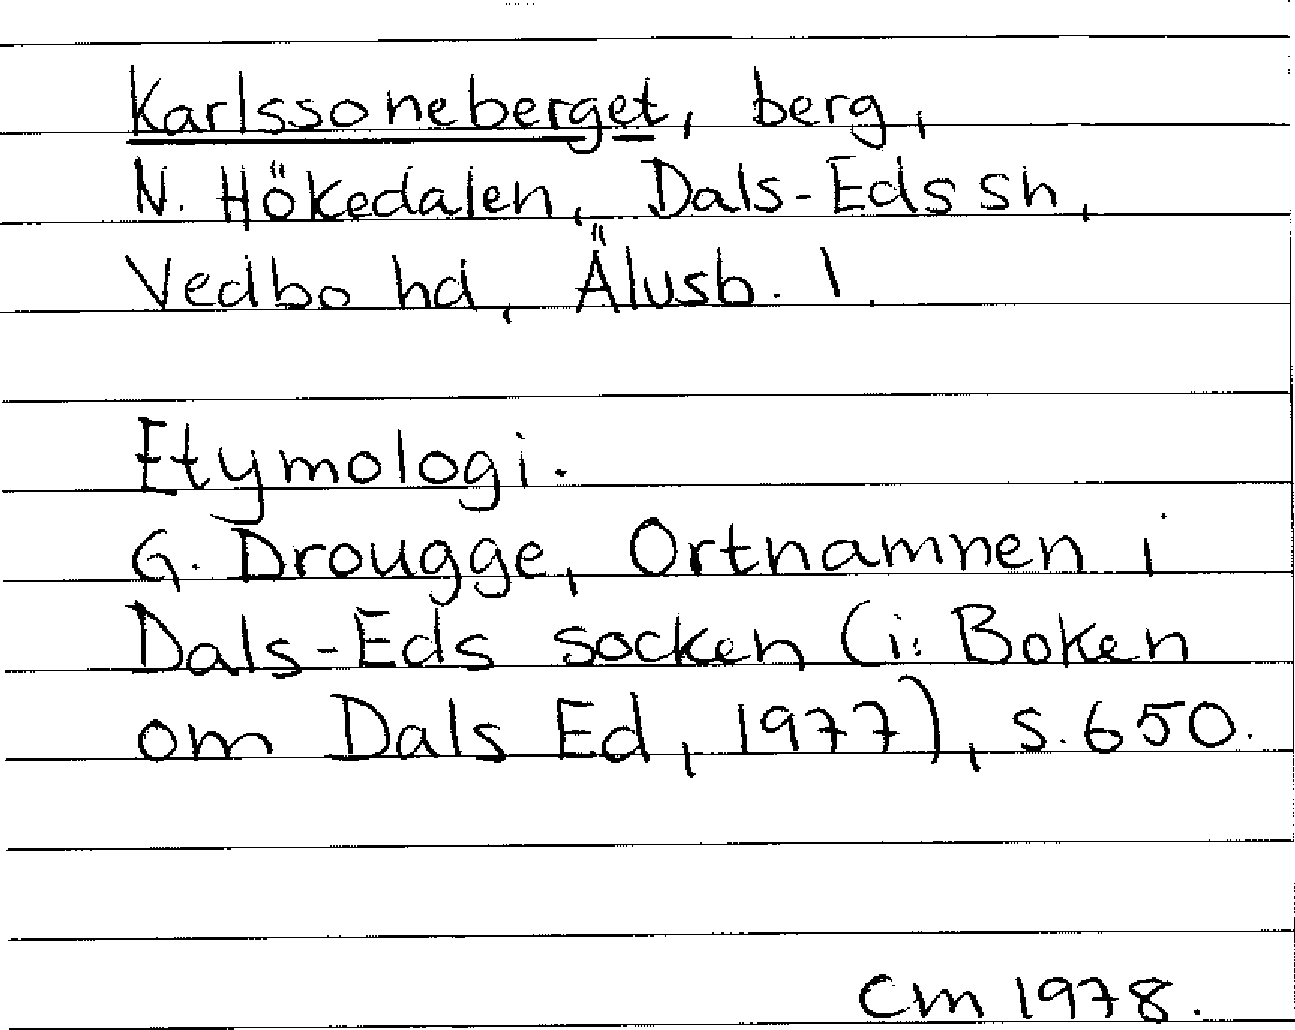 Karlssoneberget, berg,
N. Hökedalen, Dals-Eds sn,
Vedbo hd, Älvsb. l.
Etymologi.
G. Drougge, Ortnamnen i
Dals-Eds socken (i: Boken
om Dals Ed, 1977), s. 650.
Cm 1978.